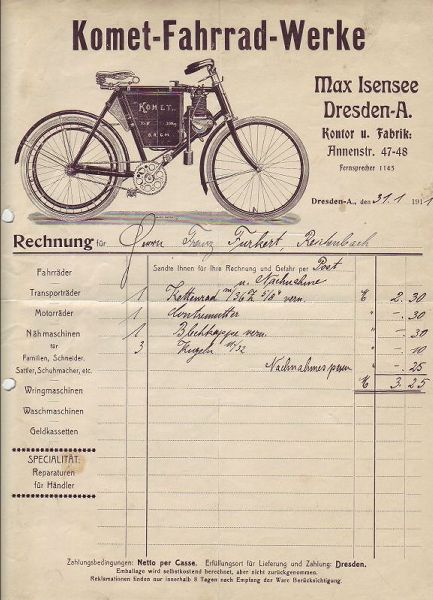 Komet-Fahrrad-Werke
Max Isensee
Dresden-A.
Kontor u. Fabrik:
Annenstr. 47-48
Fernsprecher 1145
KOMET.
D.R.G.M.
Dresden-A., den 31.1 1911
Rechnung für Herrn Franz Furkert,
Sandte Ihnen für Ihre Rechnung und Gefahr per Post
u. Nachnahme
Fahrräder
Transporträder 1 Kettenrad m/36 Z 5/8" vern. M 2.30
Motorräder 1 Kontremutter " -.30
Nähmaschinen 1 Blechkappe vern. " -.30
für 3 Kugeln " -.10
Familien, Schneider,
Sattler, Schuhmacher, etc. " -.25
M 3.25
Wringmaschinen
Waschmaschinen
Geldkassetten
SPECIALITÄT:
Reparaturen
für Händler
Zahlungsbedingungen: Netto per Casse. Erfüllungsort für Lieferung und Zahlung: Dresden.
Emballage wird selbstkostend berechnet, aber nicht zurückgenommen.
Reklamationen finden nur innerhalb 8 Tagen nach Empfang der Ware Berücksichtigung.